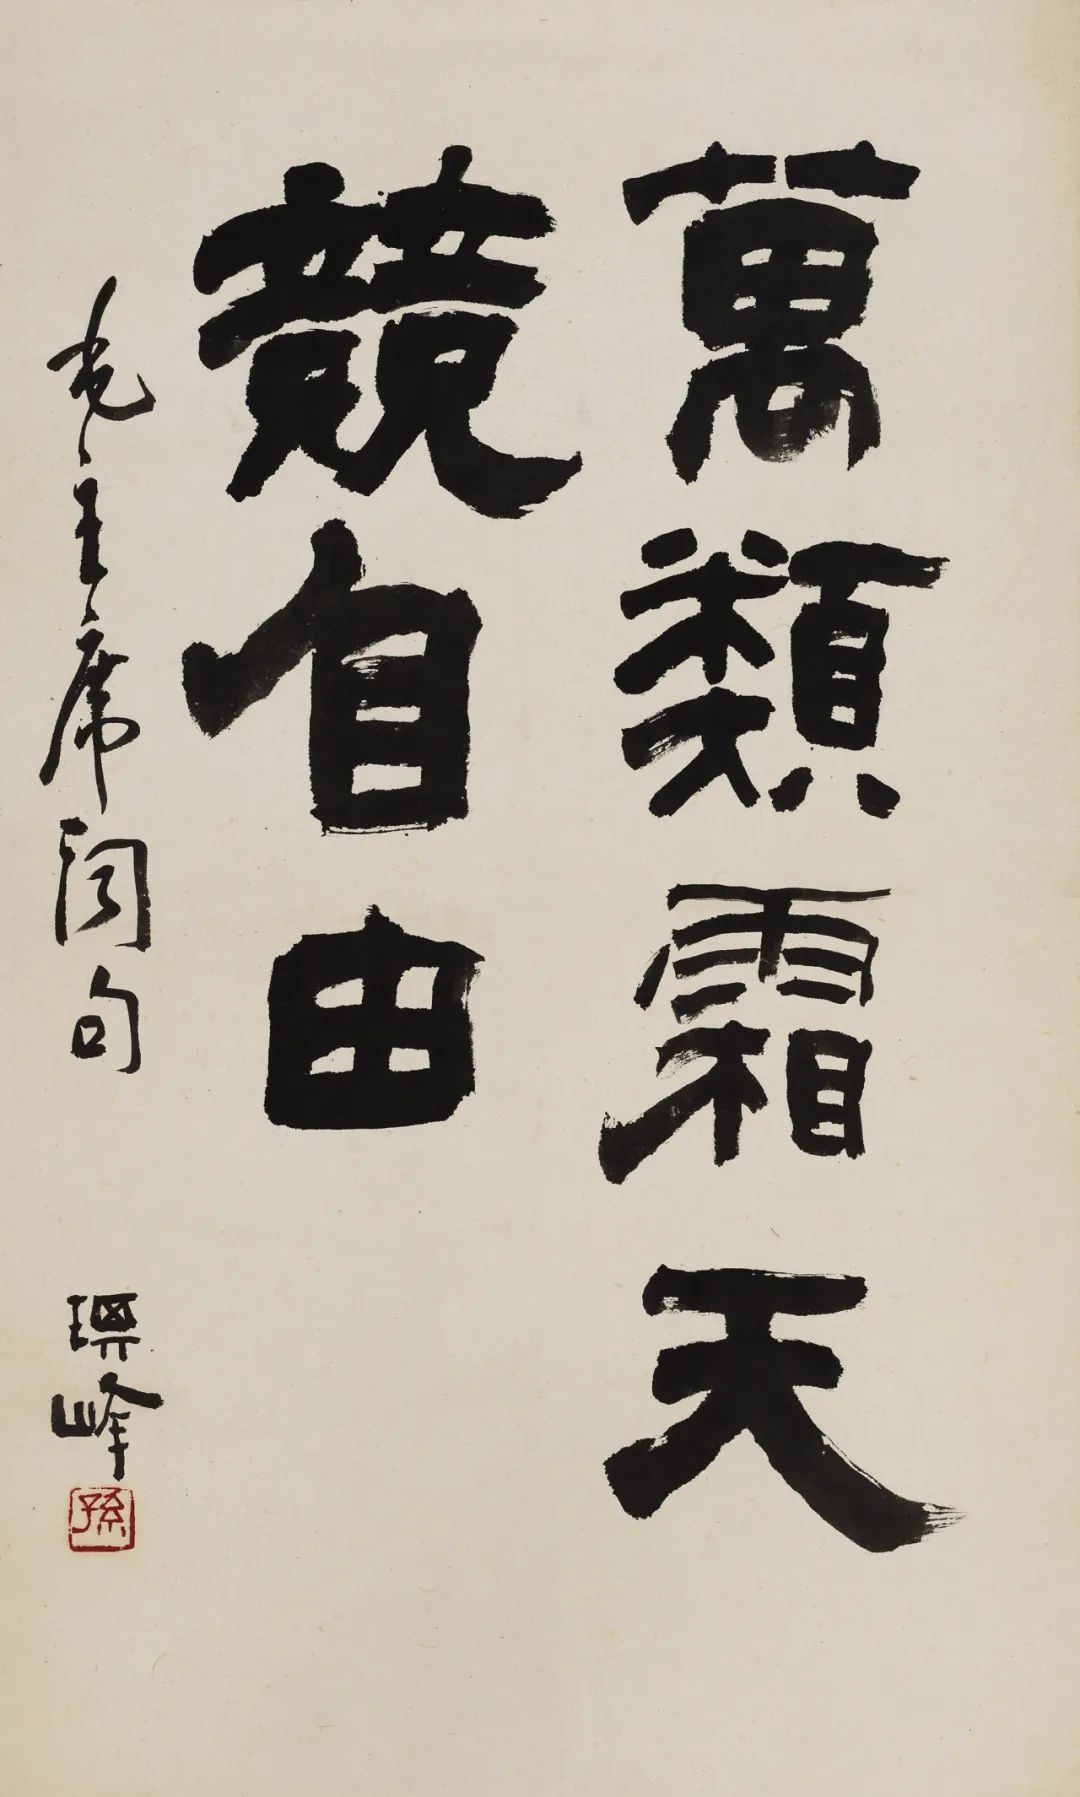 萬類霜天
競自由
毛主席词句
琪峰
孫